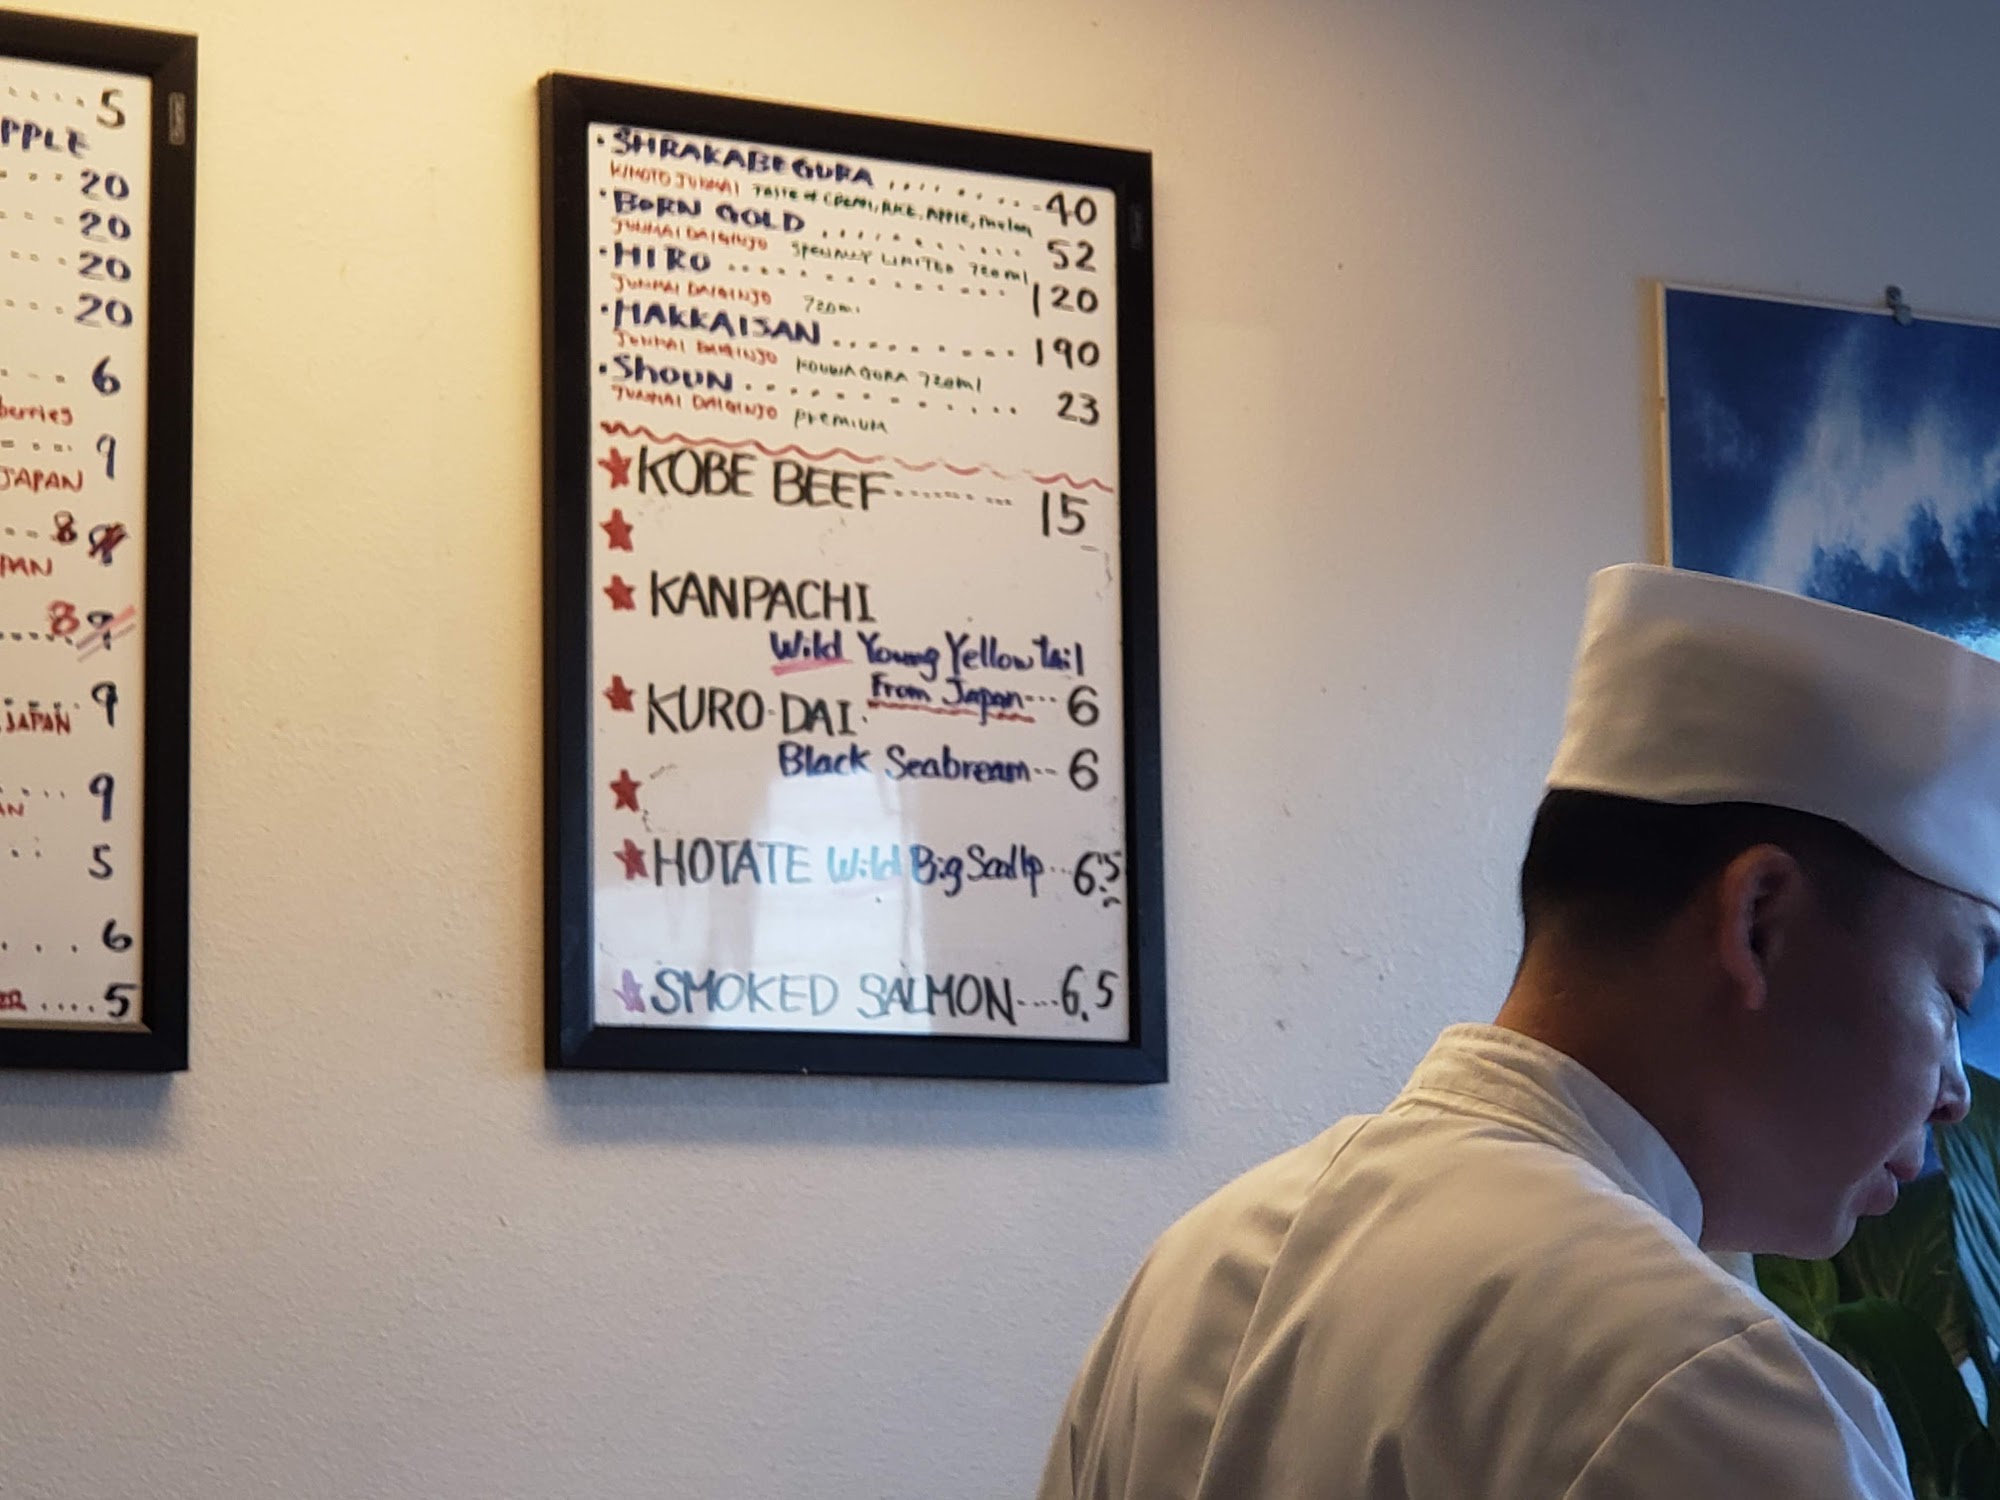 5
PPLE
20
20
20
20
6
berries
9
JAPAN
8
PAN
8 9
JAPAN 9
9
AN
5
6
5
• SHRAKABEGURA ........ 40
KIMOTO JUNMAI TASTE of CREAM, RICE, APPLE, melon
• BORN GOLD .......... 52
JUNMAI DAIGINJO SPECIALLY LIMITED 720ml
• HIRO ............ 120
JUNMAI DAIGINJO 720ml
• HAKKAISAN ......... 190
JUNMAI DAIGINJO KOUWAGURA 720ml
• Shoun ............ 23
JUNMAI DAIGINJO premium
★ KOBE BEEF .......... 15
★
★ KANPACHI
Wild Young Yellow tail
From Japan --- 6
★ KURO-DAI
Black Seabream -- 6
★
★ HOTATE Wild Big Scallp ... 6.5
★ SMOKED SALMON .... 6.5